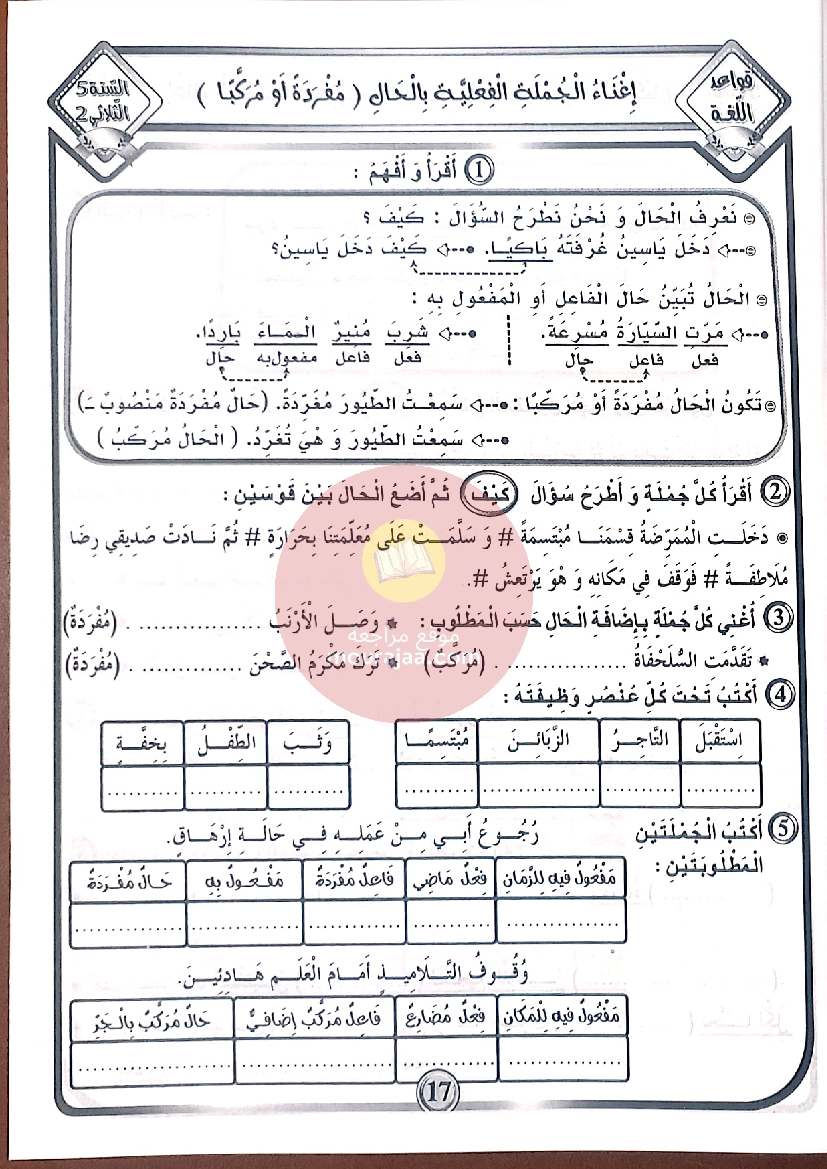 قواعد اللّغة
إِغْنَاءُ الْجُمْلَةِ الْفِعْلِيَّةِ بِالْحَالِ ( مُفْرَدَةً أَوْ مُرَكَّبًا )
السّنة 5
الثّلاثي 2
1 أَقْرَأُ وَ أَفْهَمُ :
نَعْرِفُ الْحَالَ وَ نَحْنُ نَطْرَحُ السُّؤَالَ : كَيْفَ ؟
دَخَلَ يَاسِينُ غُرْفَتَهُ بَاكِيًا. كَيْفَ دَخَلَ يَاسِينُ؟
الْحَالُ تُبَيِّنُ حَالَ الْفَاعِلِ أَوِ الْمَفْعُولِ بِهِ :
مَرَّتِ السَّيَّارَةُ مُسْرِعَةً. شَرِبَ مُنِيرٌ الْمَاءَ بَارِدًا.
فعل فاعل حال فعل فاعل مفعول به حال
تَكُونُ الْحَالُ مُفْرَدَةً أَوْ مُرَكَّبًا : سَمِعْتُ الطُّيُورَ مُغَرِّدَةً. (حَالٌ مُفْرَدَةٌ مَنْصُوبٌ ـَ)
سَمِعْتُ الطُّيُورَ وَ هْيَ تُغَرِّدُ. ( الْحَالُ مُرَكَّبٌ )
2 أَقْرَأُ كُلَّ جُمْلَةٍ وَ أَطْرَحُ سُؤَالَ كَيْفَ ثُمَّ أَضَعُ الْحَالَ بَيْنَ قَوْسَيْنِ :
دَخَلَتِ الْمُمَرِّضَةُ قِسْمَنَا مُبْتَسِمَةً # وَ سَلَّمَتْ عَلَى مُعَلِّمَتِنَا بِحَرَارَةٍ # ثُمَّ نَادَتْ صَدِيقِي رِضَا
مُلَاطِفَةً # فَوَقَفَ فِي مَكَانِهِ وَ هْوَ يَرْتَعِشُ #.
3 أُغْنِي كُلَّ جُمْلَةٍ بِإِضَافَةِ الْحَالِ حَسَبَ الْمَطْلُوبِ : * وَصَلَ الْأَرْنَبُ .............. . (مُفْرَدَةٌ)
* تَقَدَّمَت السُّلَحْفَاةُ .............. . (مُرَكَّبٌ) * تَرَكَ مُكْرَمُ الصَّحْنَ .............. . (مُفْرَدَةٌ)
موقع مراجعة
mourajaa.com
4 أَكْتُبُ تَحْتَ كُلِّ عُنْصُرٍ وَظِيفَتَهُ :
اِسْتَقْبَلَ التَّاجِرُ الزَّبَائِنَ مُبْتَسِمًا وَثَبَ الطِّفْلُ بِخِفَّةٍ
.......... .......... .............. .......... .......... .......... ..........
5 أَكْتُبُ الْجُمْلَتَيْنِ الْمَطْلُوبَتَيْنِ :
رُجُوعُ أَبِي مِنْ عَمَلِهِ فِي حَالَةِ إِرْهَاقٍ.
مَفْعُولٌ فِيهِ لِلزَّمَانِ فِعْلٌ مَاضِي فَاعِلٌ مُفْرَدَةٌ مَفْعُولٌ بِهِ حَالٌ مُفْرَدَةٌ
.............. .......... ............ ............ ............
وُقُوفُ التَّلَامِيذِ أَمَامَ الْعَلَمِ هَادِئِينَ.
مَفْعُولٌ فِيهِ لِلْمَكَانِ فِعْلٌ مُضَارِعٌ فَاعِلٌ مُرَكَّبٌ إِضَافِيٌّ حَالٌ مُرَكَّبٌ بِالْجَرِّ
.............. ............ .................. ..................
17